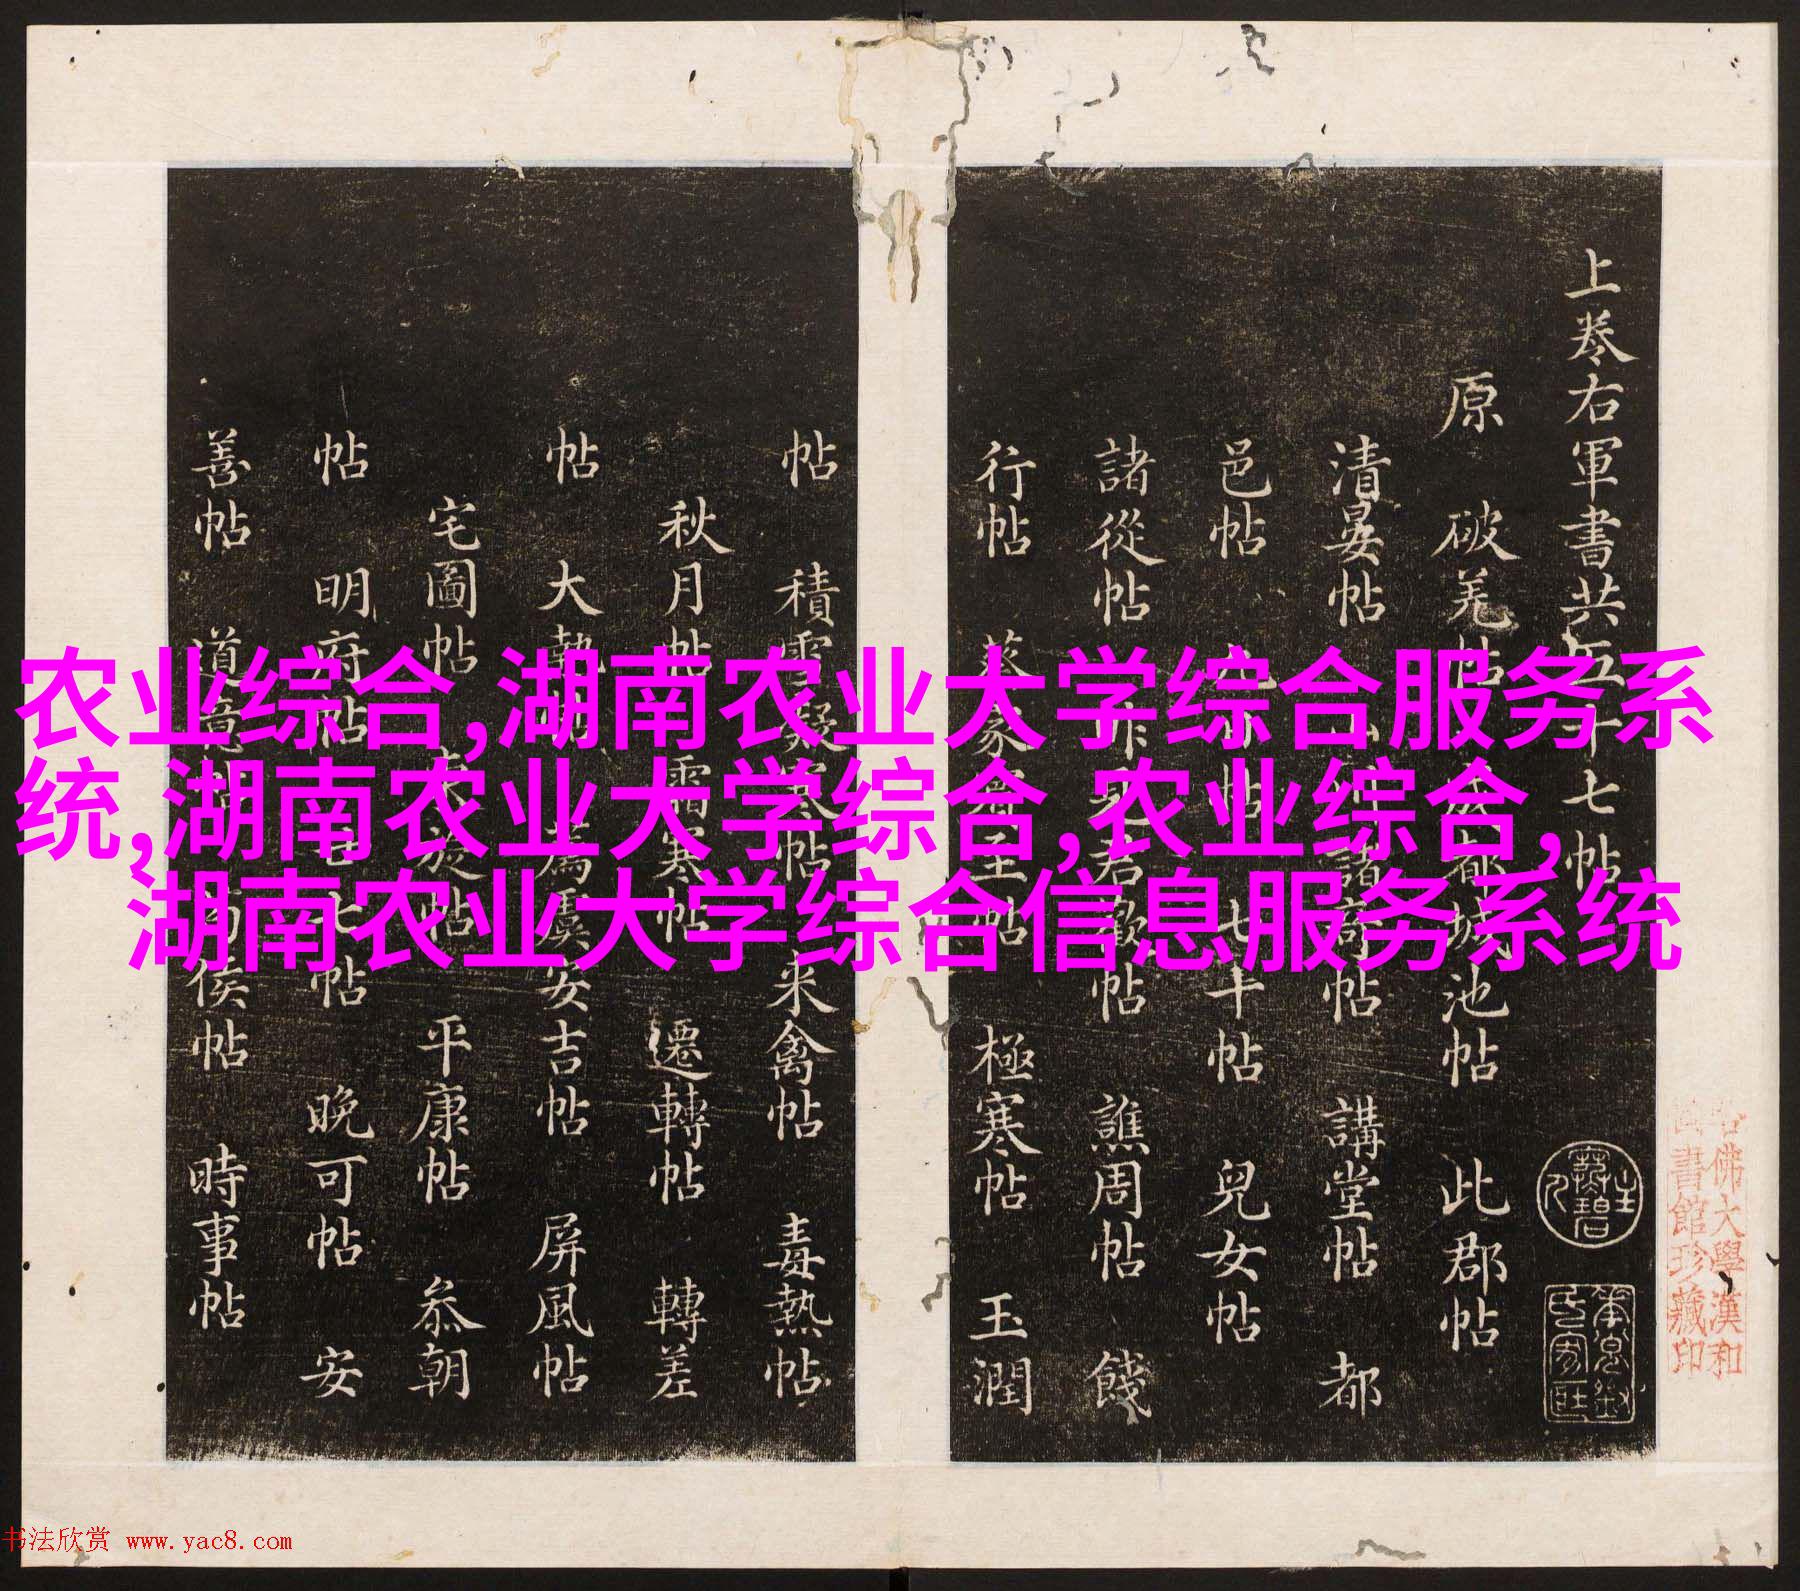 上卷右軍書共五十七帖
原 破羌帖 成都城池帖 此郡帖
清晏帖 諸帖 講堂帖 都
邑帖 帖 七十帖 兒女帖
諸從帖 昨見君歡帖 譙周帖 餞
行帖 蒸 帖 極寒帖 玉潤
帖 積雪凝寒帖 来禽帖 毒熱帖
秋月帖 霜寒帖 遷轉帖 轉差
帖 大熱帖 為虞安吉帖 屏風帖
宅圖帖 帖 平康帖 叅朝
帖 明府帖 七帖 晚可帖 安
善帖 道 侯帖 時事帖
农业综合,湖南农业大学综合服务系
统,湖南农业大学综合,农业综合,
湖南农业大学综合信息服务系统
佛大學漢和
書館珍藏印
书法欣赏 www.yac8.com